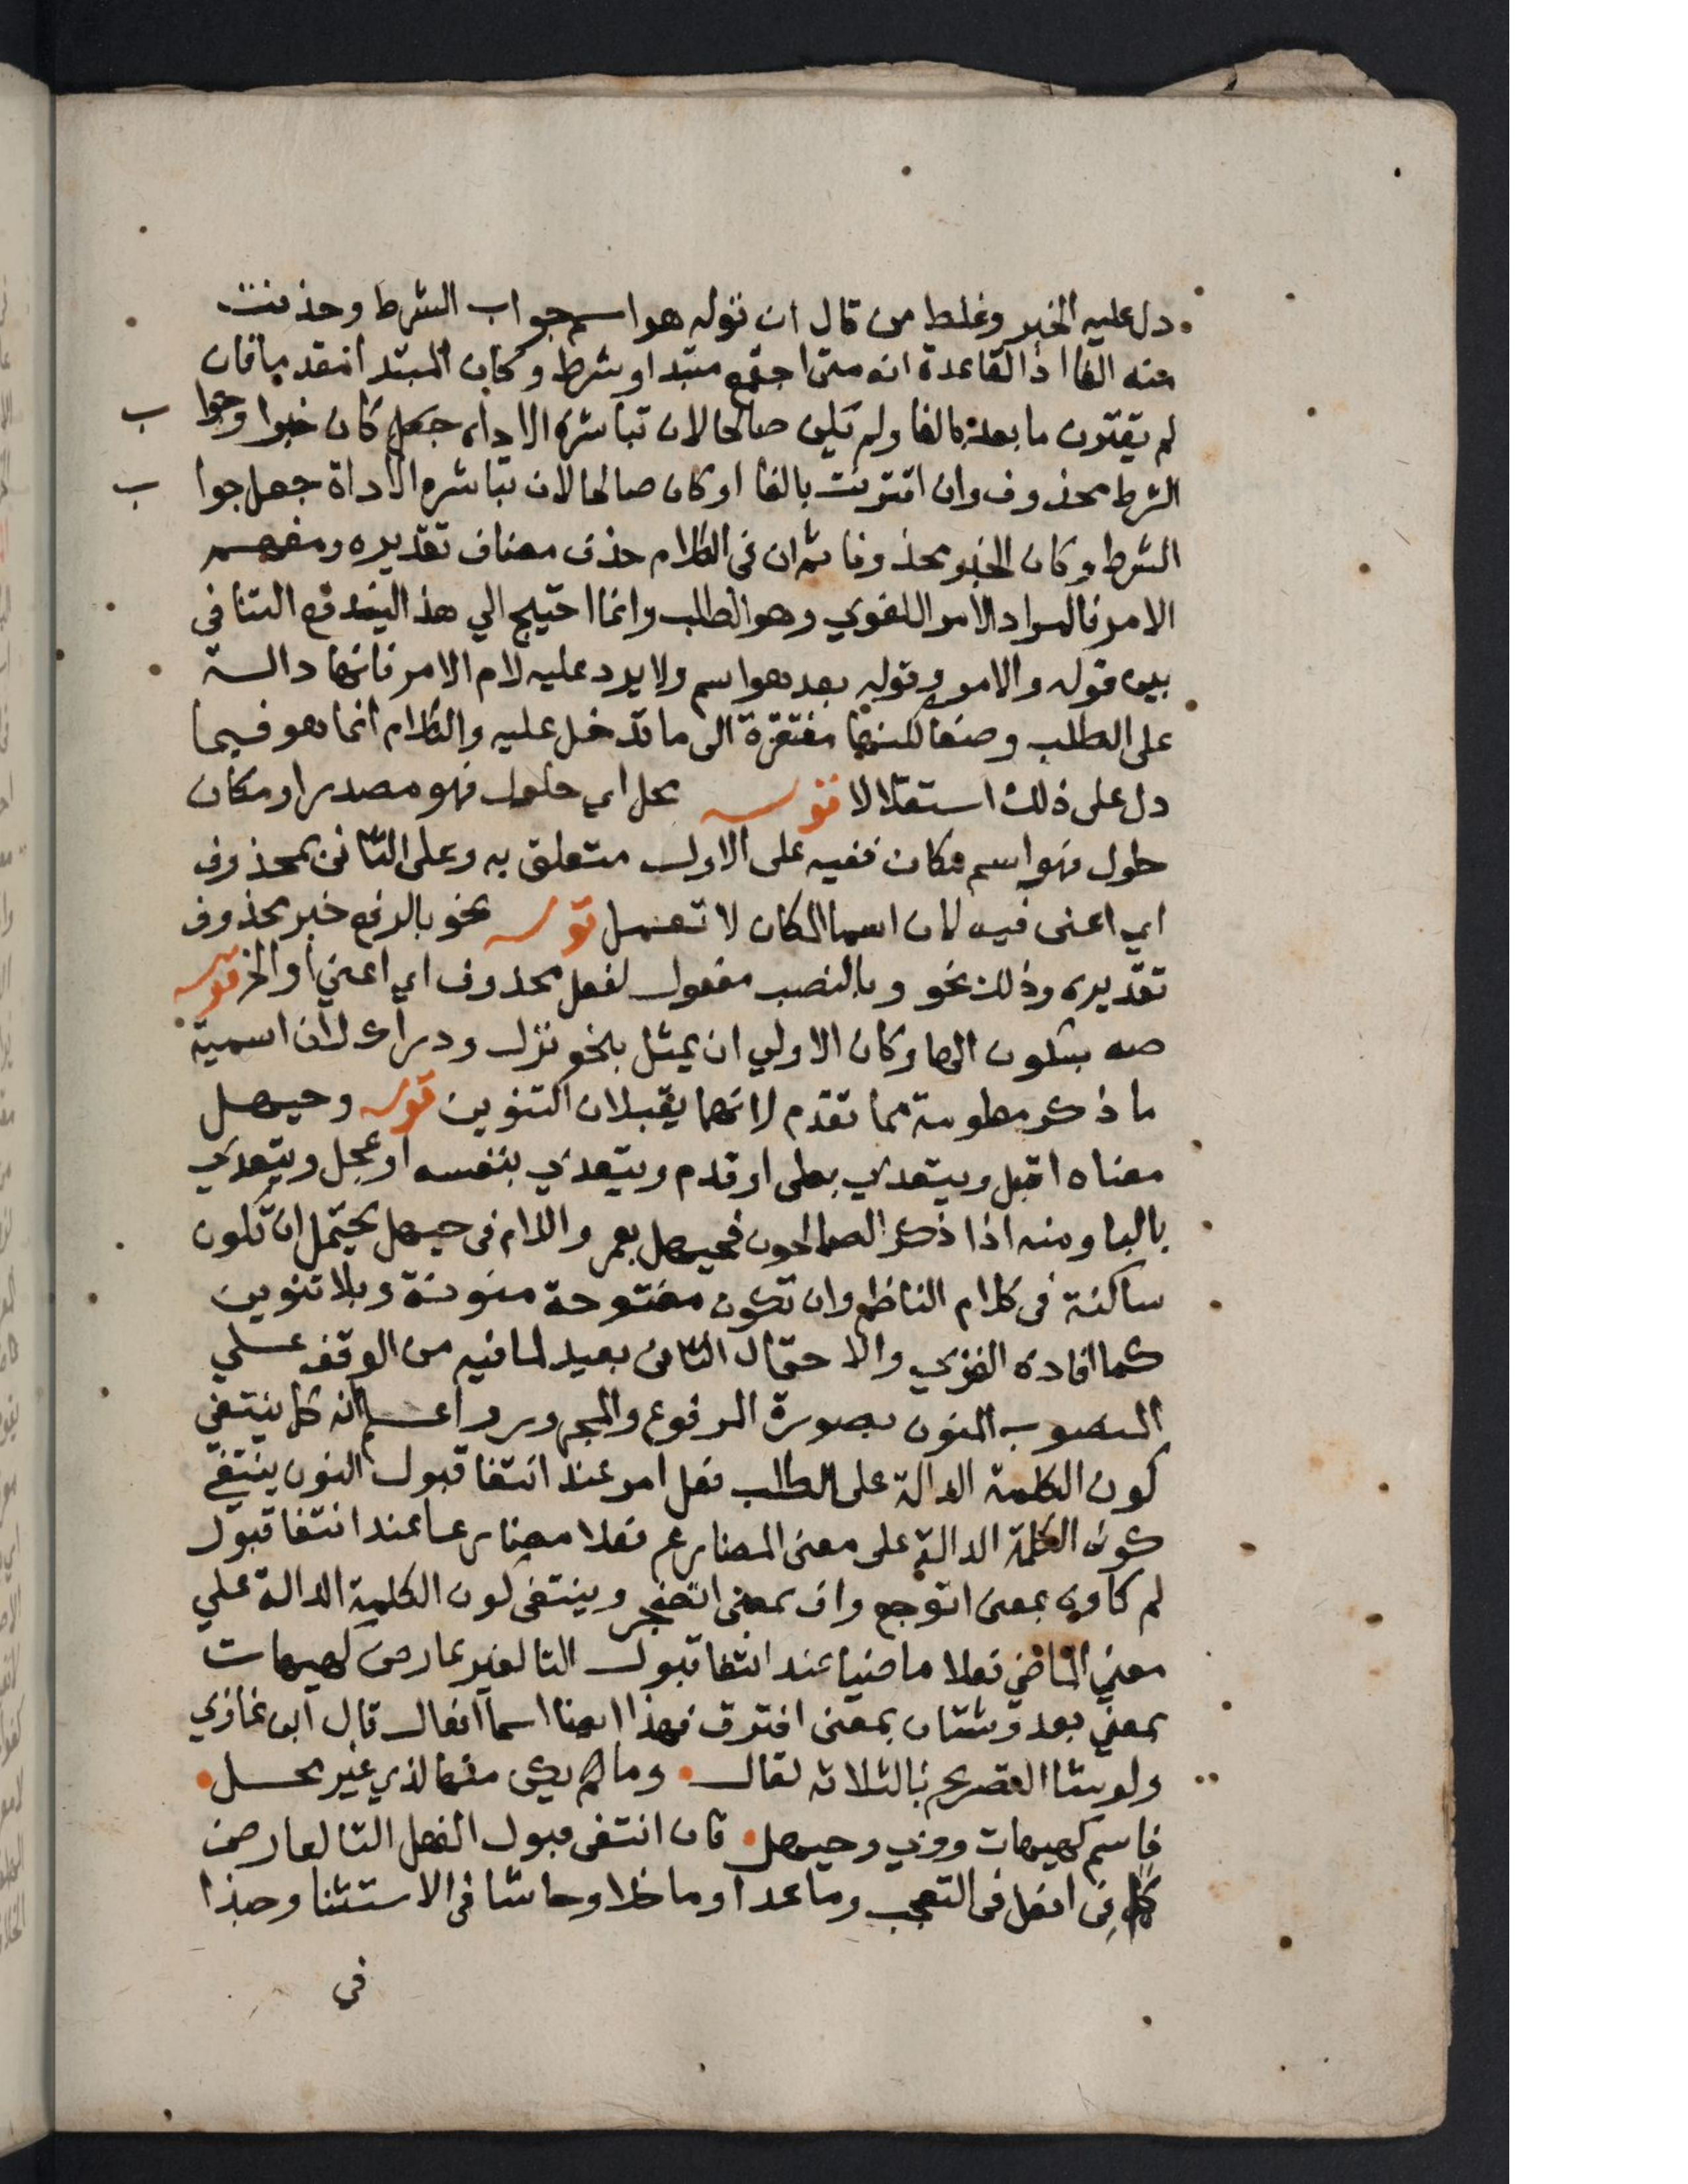 دل عليه الخبر وغلط من قال ان قوله هو اسم جواب الشرط وحذفت
منه الفا اذ القاعدة انه متى اجتمع مبتدا وشرط وكان المبتدا متقدما فان
لم يقترن ما بعده بالفا ولم يكن صالحا لان تباشره الاداه جعل كان خبرا وجوا ب
الشرط محذوف وان اقترنت بالفا او كان صالحا لان تباشره الاداة جعل جوا ب
الشرط وكان الخبر محذوفا ثم ان في الكلام حذف مضاف تقديره ومفهم
الامر فالمراد الامر اللغوي وهو الطلب وانما احتيج الي هذا ليندفع التنافي
بين قوله والامر وقوله بعد هو اسم ولا يرد عليه لام الامر فانها دالة
على الطلب وضعا لكنها مفتقرة الى ما تدخل عليه والكلام انما هو فيما
دل على ذلك استقلالا قوله محل اي حلول فهو مصدر او مكان
حلول فهو اسم مكان ففيه على الاول متعلق به وعلى الثاني بمحذوف
اي اعني فيه لان اسما المكان لا تعمل قوله نحو بالرفع خبر محذوف
تقديره وذلك نحو وبالنصب مفعول لفعل محذوف اي اعني او الخ قوله
صه بسكون الها وكان الاولي ان يمثل بنحو نزال ودراك لان اسمية
ما ذكر معلومة مما تقدم لانهما يقبلان التنوين قوله وحيهل
معناه اقبل ويتعدي بعلى او قدم ويتعدي بنفسه او عجل ويتعدي
بالبا ومنه اذا ذكر الصالحون فحيهل بعمر واللام في حيهل يحتمل ان تكون
ساكنة في كلام الناظم وان تكون مفتوحة منونة وبلا تنوين
كما افاده الغزي والاحتمال الثاني بعيد لما فيه من الوقف علي
المنصوب المنون بصورة المرفوع والمجرور واعلم انه كل ينتفي
كون الكلمة الدالة على الطلب فعل امر عند انتفا قبول النون ينتفي
كون الكلمة الدالة على معنى المضارع فعلا مضارعا عند انتفا قبول
لم كاوه بمعنى اتوجع واف بمعنى اتضجر وينتفي كون الكلمة الدالة علي
معني الماضي فعلا ماضيا عند انتفا قبول التا لغير عارض كهيهات
بمعني بعد وشتان بمعنى افترق فهذا ايضا اسما افعال قال ابن غازي
ولو شا التصريح بالثلاثه لقال • وما لم يكن منها لذي غير محل •
فاسم كهيهات ووي وحيهل • فان انتفى قبول الفعل التا لعارض
كما في افعل في التعجب وما عدا وما خلا وحاشا في الاستثنا وحبذا
في